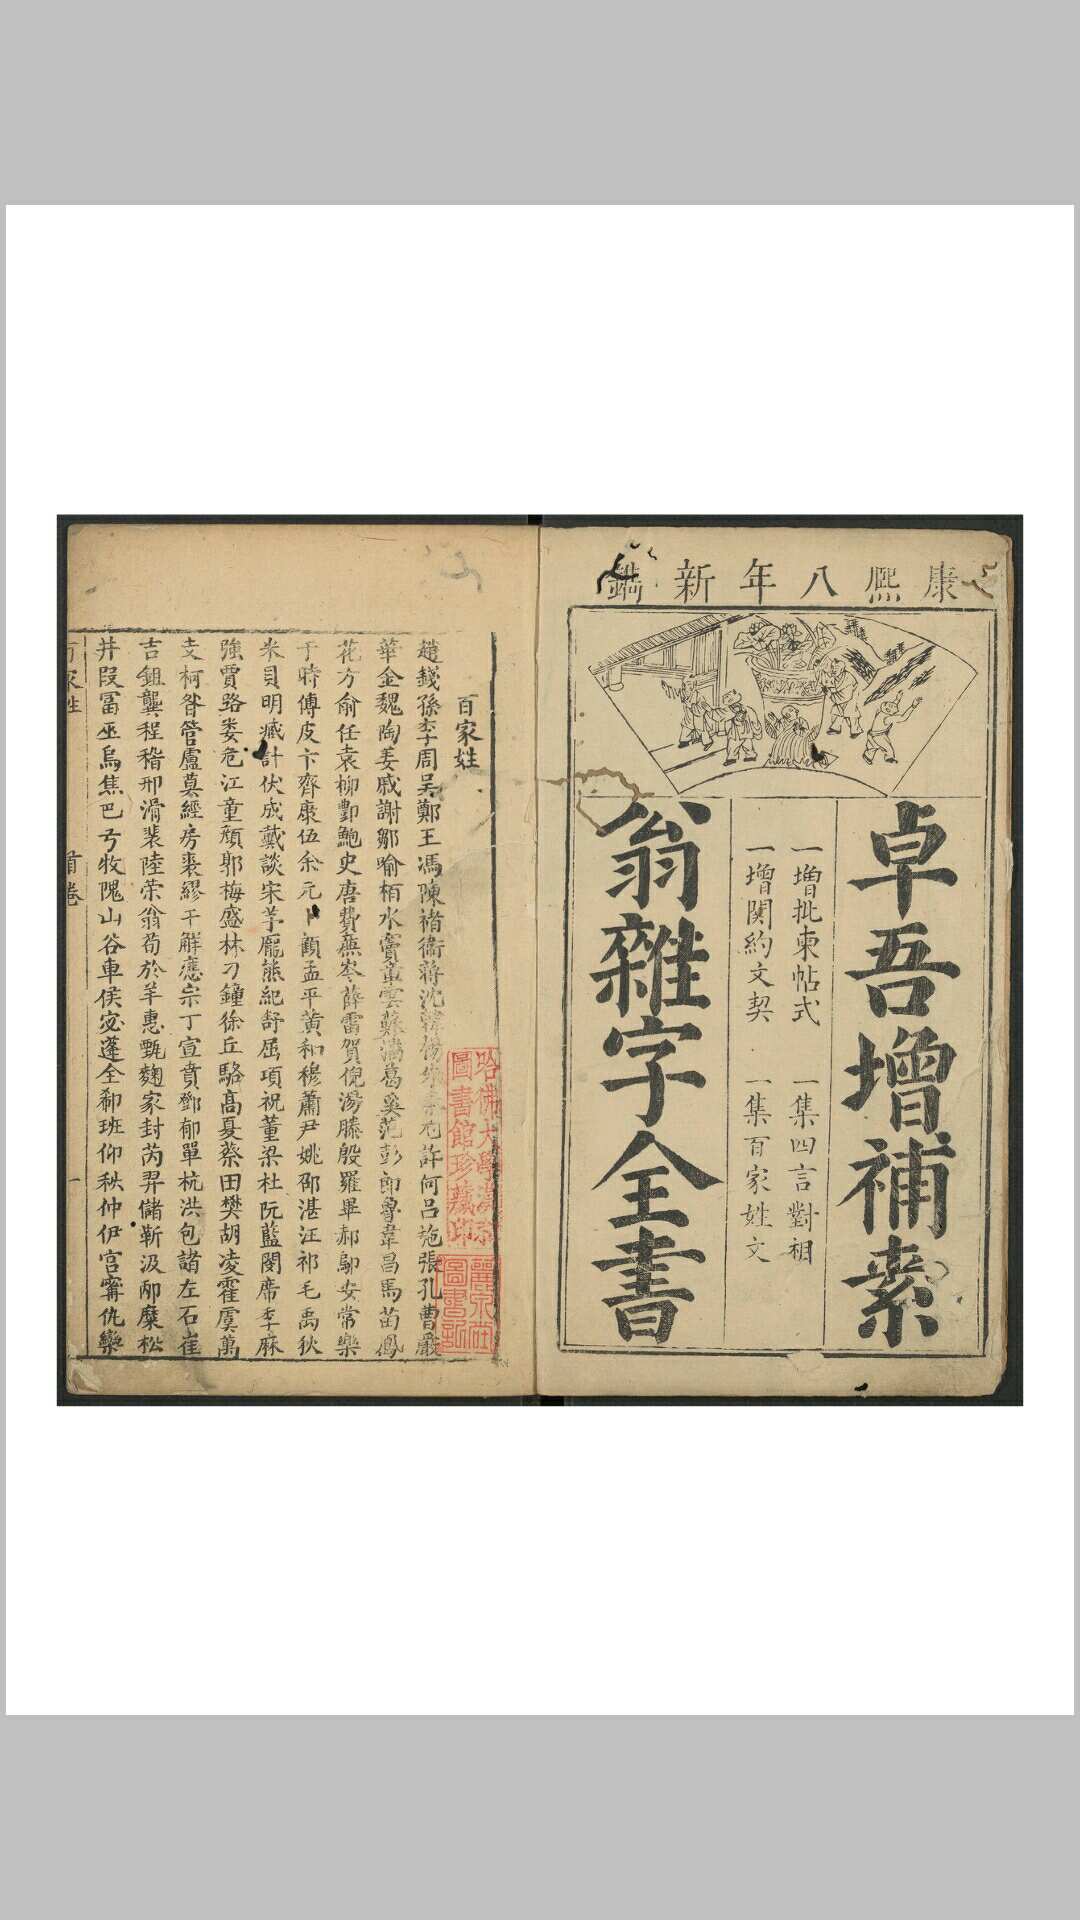 康熈八年新鐫
卓吾增補素
一增批柬帖式 一集四言對相
一增関約文契 一集百家姓文
翁雜字全書
百家姓
趙錢孫李周吳鄭王馮陳褚衛蔣沈韓楊朱秦尤許何呂施張孔曹嚴
華金魏陶姜戚謝鄒喻栢水竇章雲蘇潘葛奚范彭郎魯韋昌馬苗鳳
花方俞任袁柳酆鮑史唐費㢘岑薛雷賀倪湯滕殷羅畢郝鄔安常樂
于時傅皮卞齊康伍余元卜顧孟平黃和穆蕭尹姚邵湛汪祁毛禹狄
米貝明臧計伏成戴談宋茅龐熊紀舒屈項祝董梁杜阮藍閔席季麻
強賈路婁危江童顏郭梅盛林刁鐘徐丘駱高夏蔡田樊胡凌霍虞萬
支柯昝管盧莫經房裘繆干解應宗丁宣賁鄧郁單杭洪包諸左石崔
吉鈕龔程嵇邢滑裴陸荣翁荀於羊惠甄麹家封芮羿儲靳汲邴糜松
井段富巫烏焦巴弓牧隗山谷車侯宓蓬全郗班仰秋仲伊宮甯仇欒
百家姓 首卷 一
哈佛大學
圖書館珍藏印
圖書記